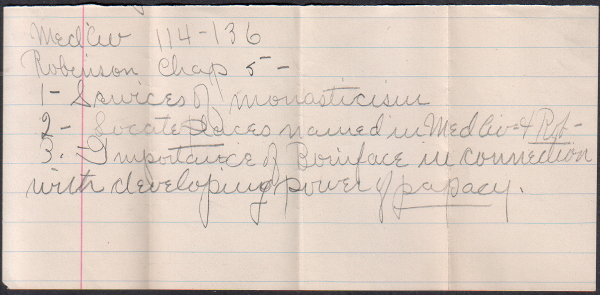 Med Civ 114-136
Robinson Chap 5-
1- Services of monasticism
2- Locate places named in Med Civ & Rob-
3. Importance of Boniface in connection
with developing power of papacy.